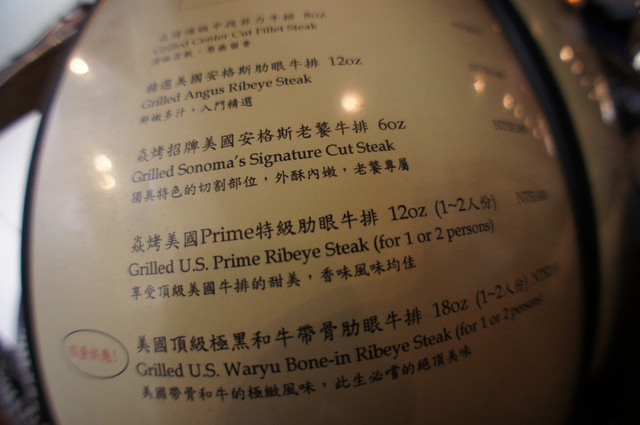 8oz
Grilled Center Cut Fillet Steak
精選美國安格斯肋眼牛排 12oz
Grilled Angus Ribeye Steak
鮮嫩多汁，入門精選
焱烤招牌美國安格斯老饕牛排 6oz
Grilled Sonoma's Signature Cut Steak
獨具特色的切割部位，外酥內嫩，老饕專屬
焱烤美國Prime特級肋眼牛排 12oz (1~2人份)
Grilled U.S. Prime Ribeye Steak (for 1 or 2 persons)
享受頂級美國牛排的甜美，香味風味均佳
美國頂級極黑和牛帶骨肋眼牛排 18oz (1~2人份)
Grilled U.S. Waryu Bone-in Ribeye Steak (for 1 or 2 persons)
美國帶骨和牛的極緻風味，此生必嚐的絕頂美味